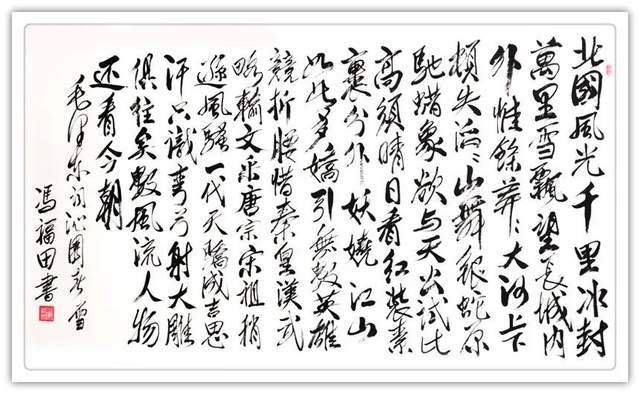 北國風光千里冰封
萬里雪飄望長城内
外惟餘莽々大河上下
頓失滔々山舞銀蛇原
馳蜡象欲与天公試比
高須晴日看紅裝素
裹分外妖嬈江山
如此多嬌引無數英雄
競折腰惜秦皇漢武
略輸文采唐宗宋祖稍
遜風騷一代天驕成吉思
汗只識彎弓射大雕
俱往矣數風流人物
还看今朝
毛澤東詞沁園春雪
馮福田書